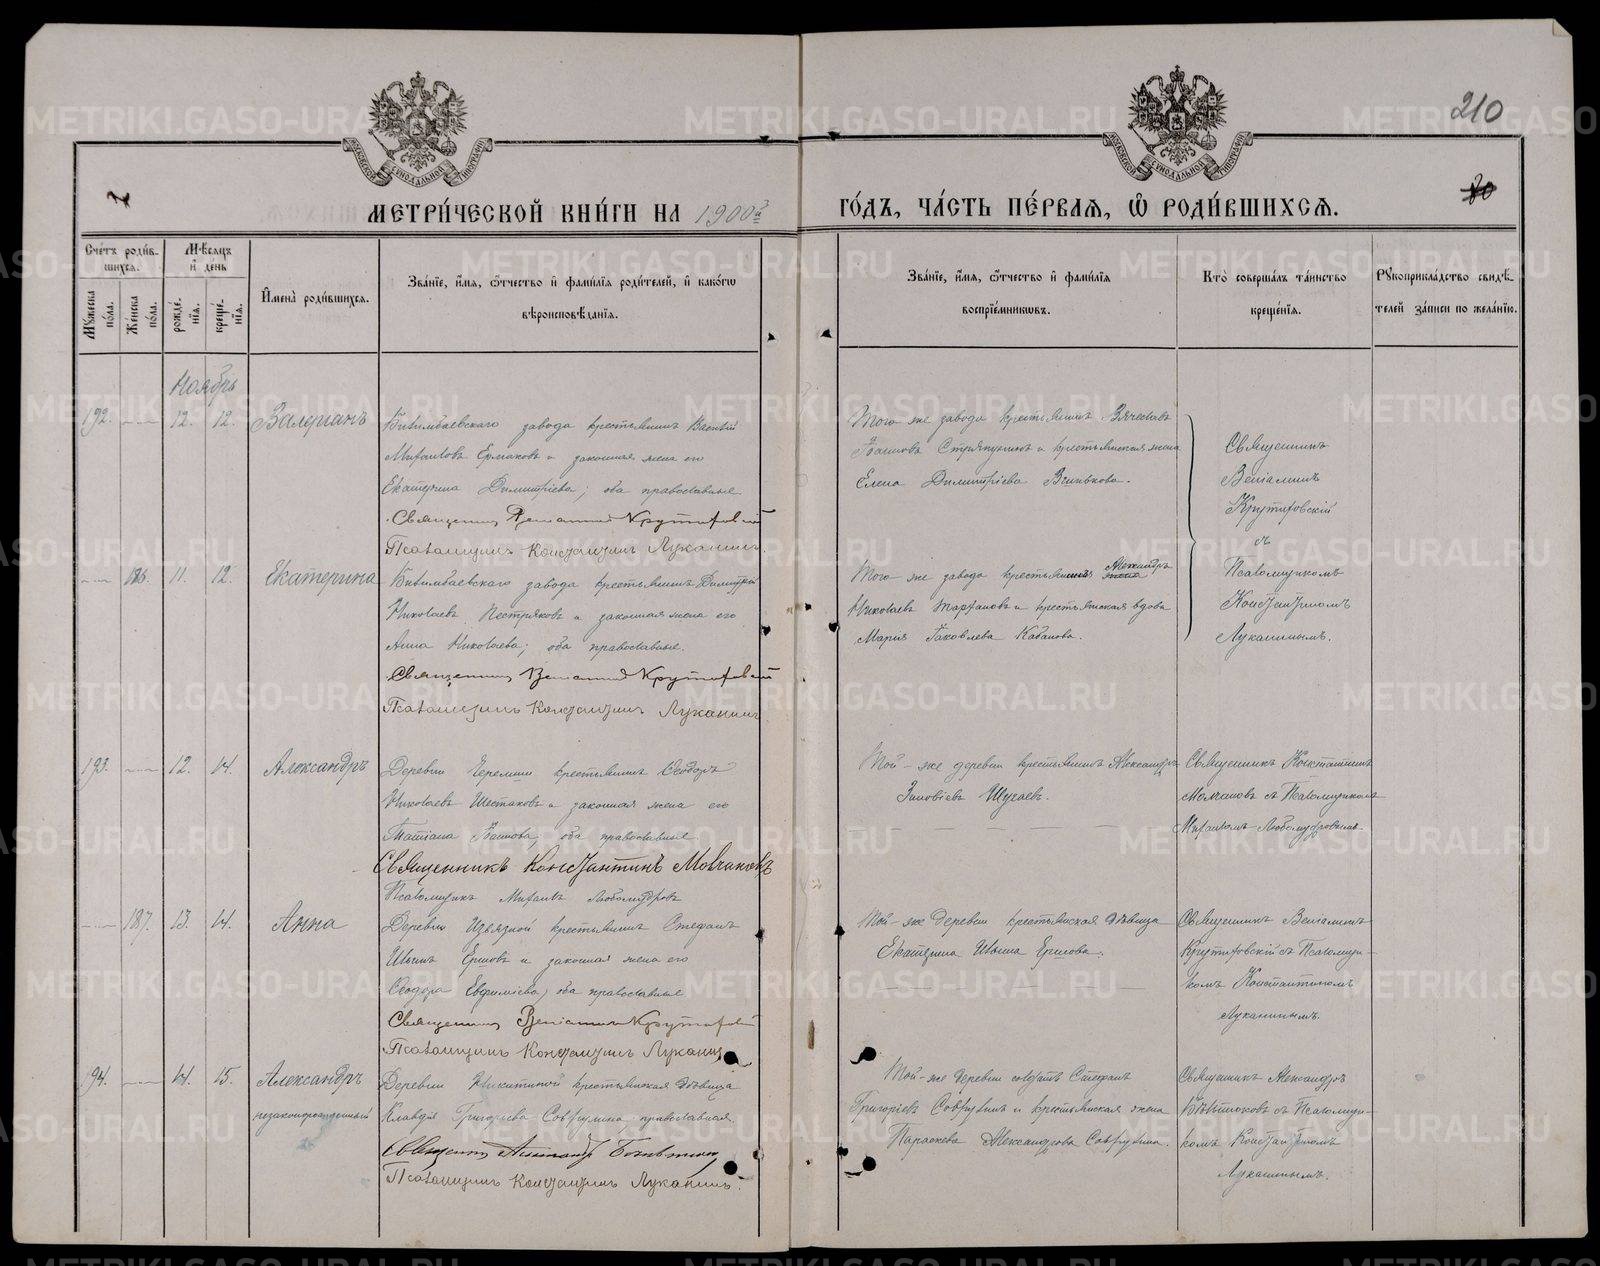 210
МЕТРИ́ЧЕСКОЙ КНИ́ГИ НА 1900й
ГО́ДЪ, ЧА́СТЬ ПЕ́РВАЯ, Ѡ РОДИ́ВШИХСЯ.
Сче́тъ роди́вшихся.
Му́жеска по́ла.
Же́нска по́ла.
Мѣ́сяцъ и҆ день
рожде́нїя.
креще́нїя.
И҆мена̀ роди́вшихся.
Зва́нїе, и҆́мя, ѻ҆́тчество и҆ фами́лїя роди́телей, и҆ како́гѡ
вѣроисповѣ́данїя.
Зва́нїе, и҆́мя, ѻ҆́тчество и҆ фами́лїя
воспрїе́мникѡвъ.
Кто̀ соверша́лъ та́инство
креще́нїя.
Рꙋкоприкла́дство свидѣ́-
телей за́писи по жела́нїю.
Ноябрь
192.
12.
12.
Валеріанъ
Билимбаевскаго завода крестьянинъ Василій
Михаиловъ Ермаковъ и законная жена его
Екатерина Димитріева; оба православные
Священникъ Веніаминъ Крутиховскій
Псаломщикъ Константинъ Луканинъ.
Того же завода крестьянинъ Вячеславъ
Іоанновъ Стряпунинъ и крестьянская жена
Елена Димитріева
Священникъ
Веніаминъ
Крутиховскій
съ
Псаломщикомъ
Константиномъ
Луканинымъ.
186.
11.
12.
Екатерина
Билимбаевскаго завода крестьянинъ Димитрій
Николаевъ Пестряковъ и законная жена его
Анна Николаева; оба православные.
Священникъ Веніаминъ Крутиховскій
Псаломщикъ Константинъ Луканинъ
Того же завода крестьянинъ Александръ
Николаевъ и крестьянская вдова
Марія Іаковлева Кабанова.
193.
12.
14.
Александръ
Деревни Черемши крестьянинъ Ѳеодоръ
Николаевъ Шестаковъ и законная жена его
Татіана Іоаннова, оба православные.
Священникъ Константинъ Молчановъ
Псаломщикъ Михаилъ Любомудровъ
Той-же деревни крестьянинъ Александръ
Зиновіевъ
Священникъ Константинъ
Молчановъ съ Псаломщикомъ
Михаиломъ Любомудровымъ.
187.
13.
14.
Анна
Деревни Извязной крестьянинъ Стефанъ
Ильинъ Ершовъ и законная жена его
Ѳеодора Евфиміева, оба православные
Священникъ Веніаминъ Крутиховскій
Псаломщикъ Константинъ Луканинъ
Той-же деревни крестьянская дѣвица
Екатерина Ильина Ершова.
Священникъ Веніаминъ
Крутиховскій съ Псаломщи-
комъ Константиномъ
Луканинымъ.
194.
14.
15.
Александръ
незаконнорожденный
Деревни Никитиной крестьянская дѣвица
Клавдія Григоріева Совруlина, православная.
Священникъ Александръ
Псаломщикъ Константинъ Луканинъ.
Той-же деревни солдатъ Стефанъ
Григоріевъ и крестьянская жена
Параскева Александрова
Священникъ Александръ
съ Псаломщи-
комъ Константиномъ
Луканинымъ.
METRIKI.GASO-URAL.RU